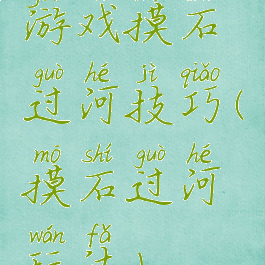 游戏摸石
guò hé jì qiǎo
过河技巧(
mō shí guò hé
摸石过河
wán fǎ
玩法)